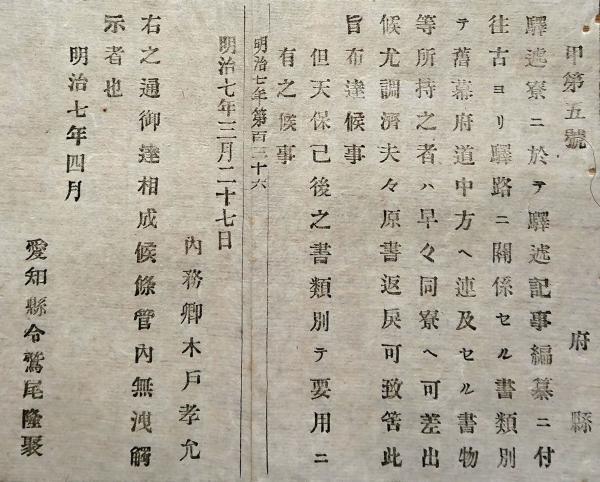 甲第五號
府縣
驛逓寮ニ於テ驛逓記事編纂ニ付
往古ヨリ驛路ニ關係セル書類別
テ舊幕府道中方ヘ連及セル書物
等所持之者ハ早々同寮ヘ可差出
候尤調濟夫々原書返戻可致筈此
旨布達候事
但天保已後之書類別テ要用ニ
有之候事
明治七年第百三十六
明治七年三月二十七日
內務卿木戶孝允
右之通御達相成候條管內無洩觸
示者也
明治七年四月
愛知縣令鷲尾隆聚